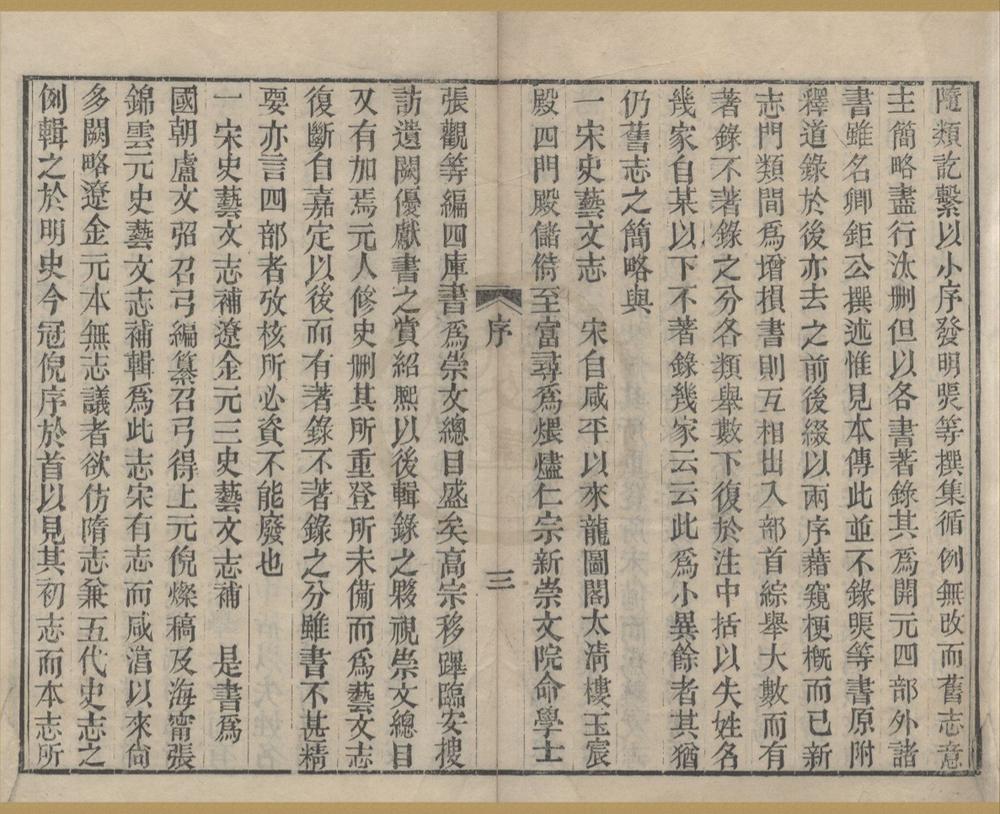 隨類訖繫以小序發明煚等撰集循例無改而舊志意
主簡略盡行汰刪但以各書著錄其爲開元四部外諸
書雖名卿鉅公撰述惟見本傳此並不錄煚等書原附
釋道錄於後亦去之前後綴以兩序藉窺梗概而已新
志門類間爲增損書則互相出入部首綜舉大數而有
著錄不著錄之分各類舉數下復於注中括以失姓名
幾家自某以下不著錄幾家云云此爲小異餘者其猶
仍舊志之簡略與
一宋史藝文志　宋自咸平以來龍圖閣太淸樓玉宸
殿四門殿儲偫至富尋爲煨燼仁宗新崇文院命學士
序　三
張觀等編四庫書爲崇文總目盛矣高宗移蹕臨安搜
訪遺闕優獻書之賞紹熙以後輯錄之夥視崇文總目
又有加焉元人修史刪其所重登所未備而爲藝文志
復斷自嘉定以後而有著錄不著錄之分雖書不甚精
要亦言四部者攷核所必資不能廢也
一宋史藝文志補遼金元三史藝文志補　是書爲
國朝盧文弨召弓編纂召弓得上元倪燦稿及海甯張
錦雲元史藝文志補輯爲此志宋有志而咸湻以來尙
多闕略遼金元本無志議者欲仿隋志兼五代史志之
例輯之於明史今冠倪序於首以見其初志而本志所